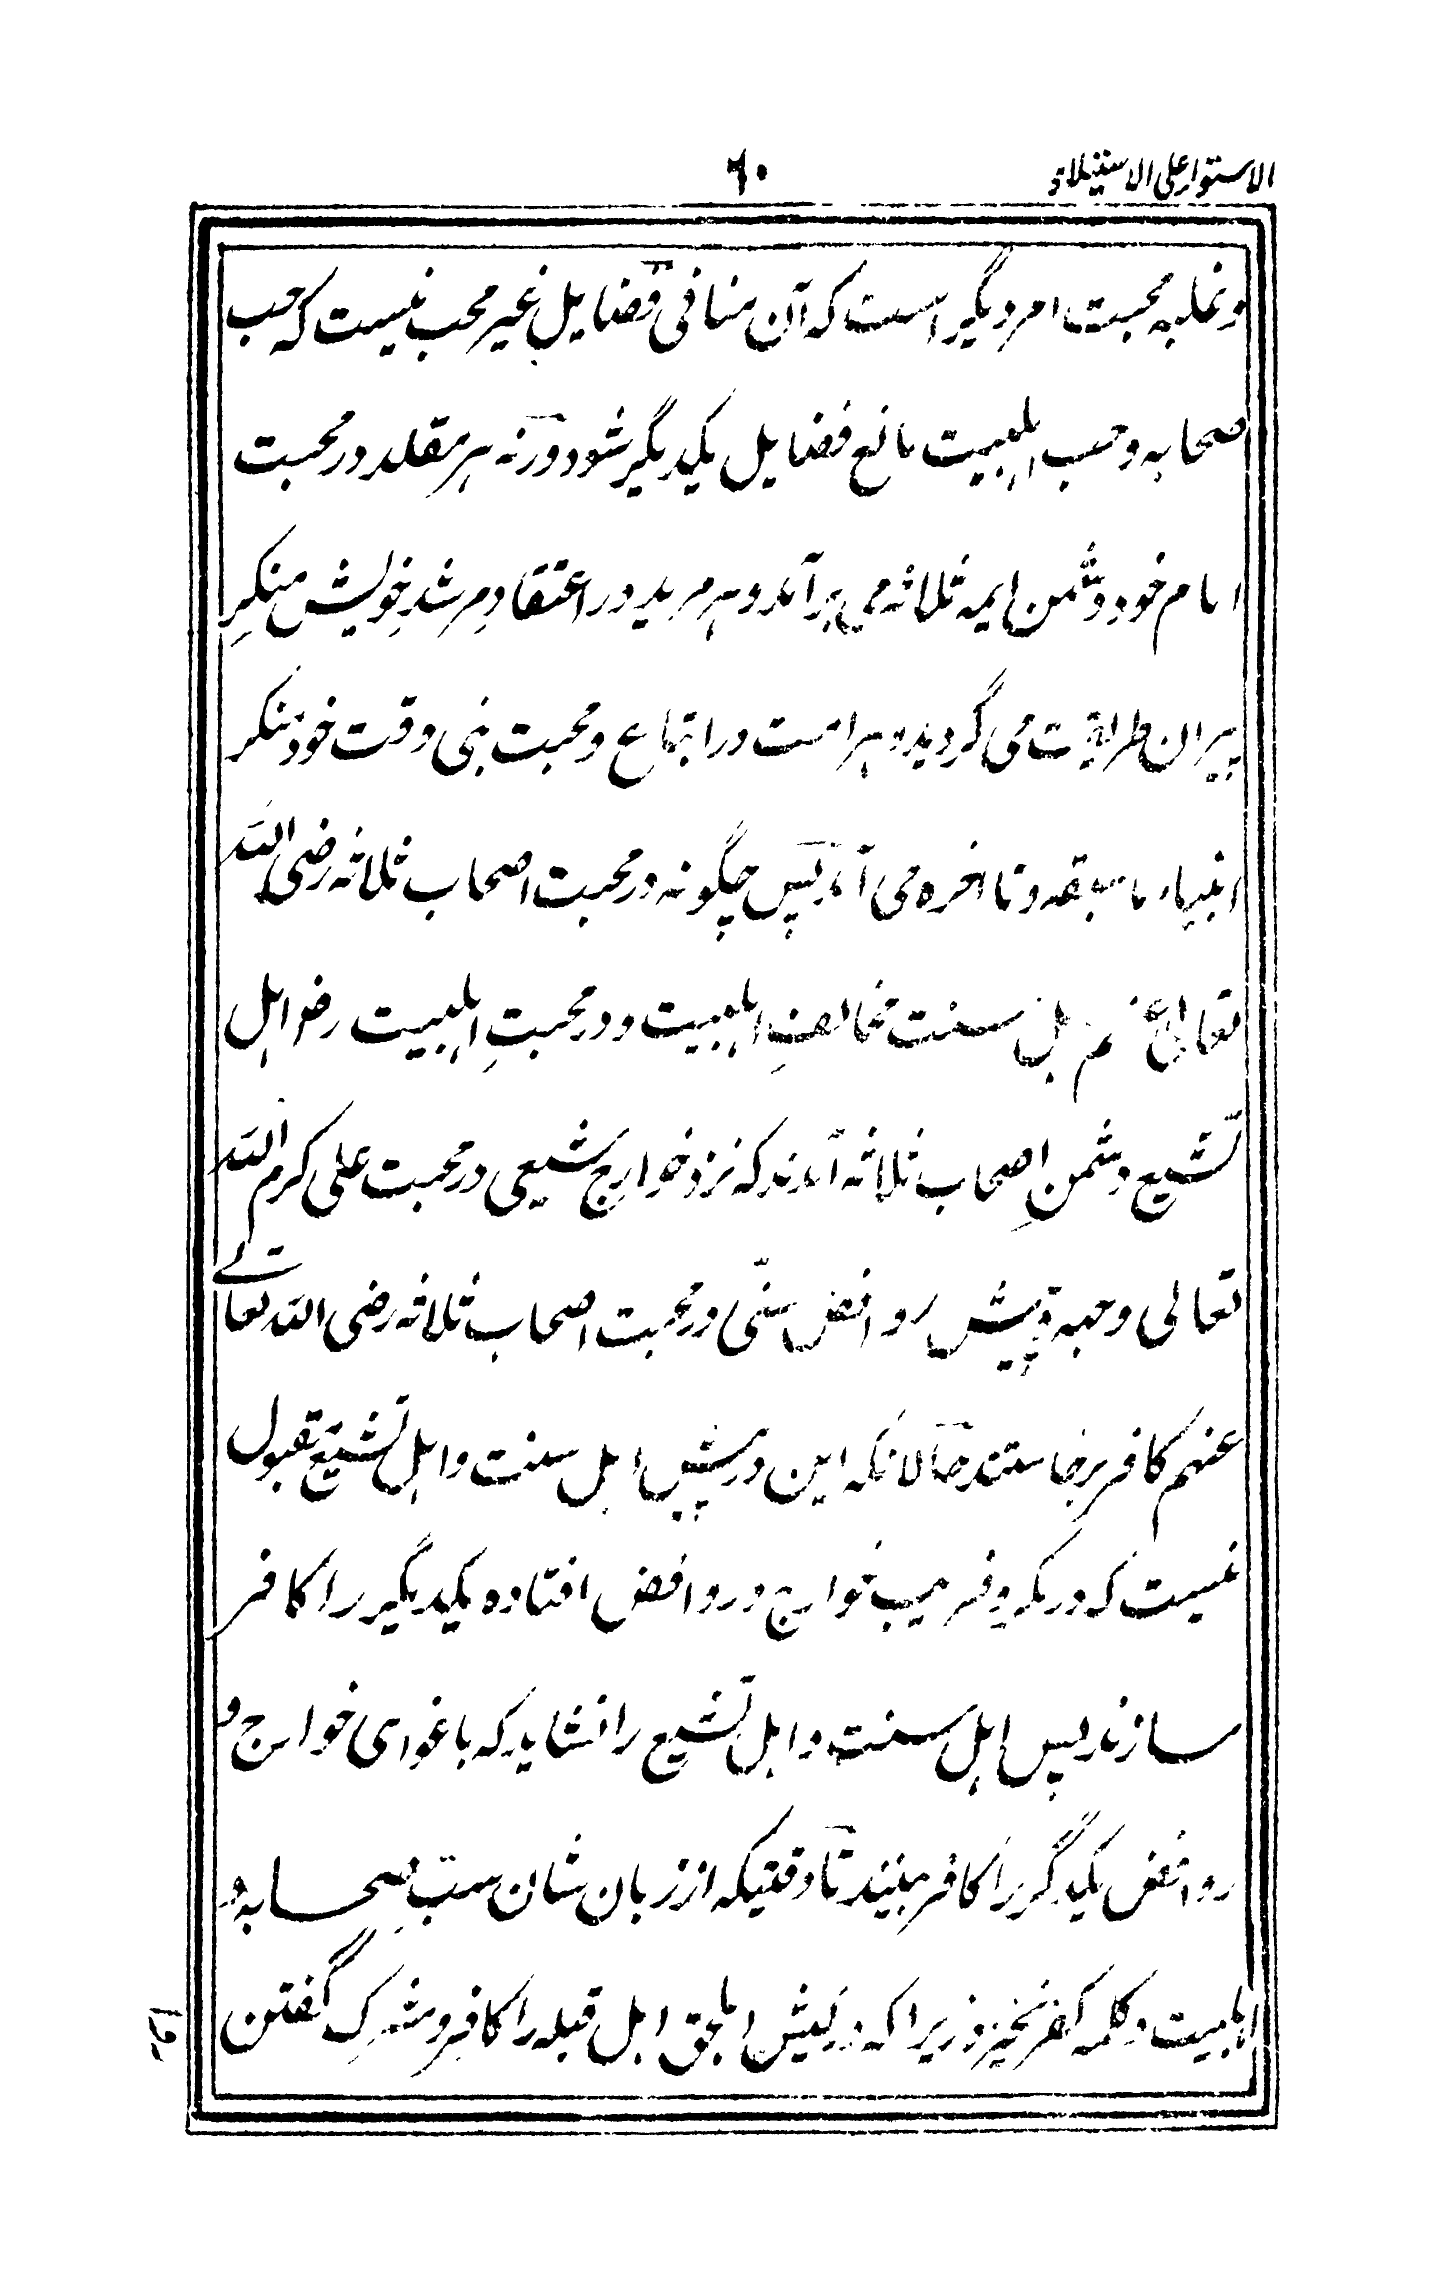 الاستوار علی الاستیلاء
٦٠
و غلبه محبت امر دیگر است که آن منافی فضایل غیر محب نیست که حب
صحابه و حب اہلبیت مانع فضایل یکدیگر شود ورنه هر مقلد در محبت
امام خود دشمن ایمه ثلاثه می برآمد و هر مرید در اعتقادِ مرشدِ خویش منکرِ
پیران طریقت می گردید و هر امت در اتباع و محبت نبی وقت خود منکر
انبیاء ما سبقه و تاخره می آمد پس چگونه در محبت اصحاب ثلاثه رضی الله
تعالی عنهم اہل سنت مخالفِ اہلبیت و در محبتِ اہلبیت رضو اہل
تشیع دشمنِ اصحاب ثلاثه آمدند که نزد خوارج شیعی در محبت علی کرم الله
تعالی وجهه و پیش روافض سنّی در محبت اصحاب ثلاثه رضی الله تعالے
عنهم کافر برخاستند حالانکه این در پیش اہل سنت و اہل تشیع مقبول
نیست که در مکر و فریب خوارج و روافض افتاده یکدیگر را کافر
سازند پس اہل سنت و اہل تشیع را نشاید که باغوای خوارج و
روافض یکدیگر را کافر بینند تا وقتیکه از زبان شان سبِّ صحابه و
اہلبیت و کلمه کفر نخیزد زیرا که در کیش اہلحق اہل قبله را کافر و مشرک گفتن